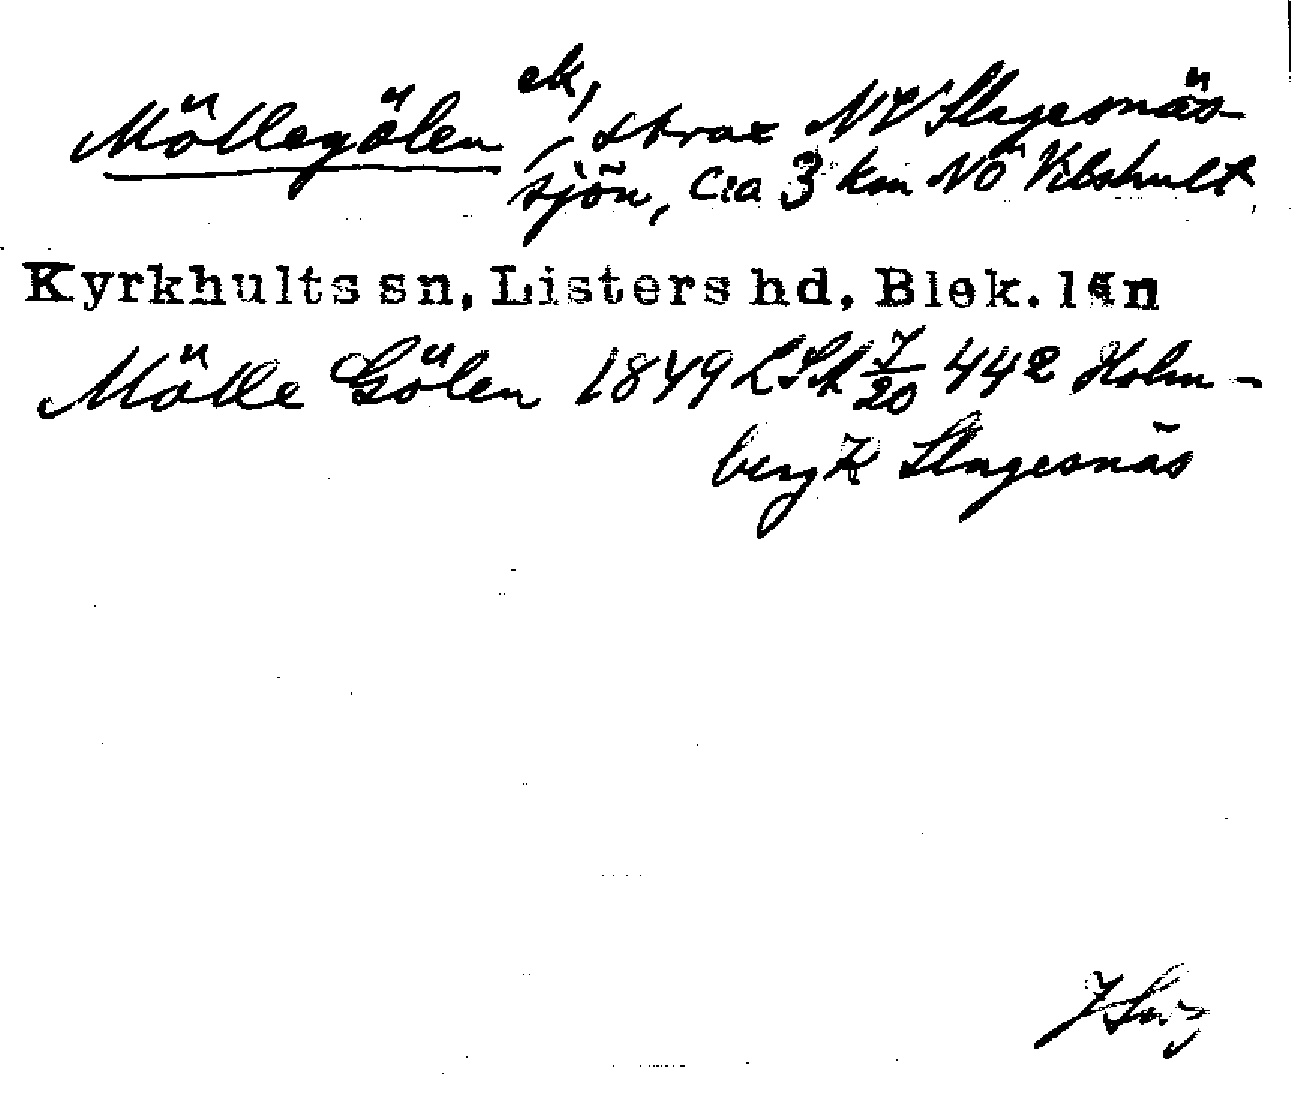 Möllegölen ek, strax NV Slagesnäs-
sjön, c:a 3 km NÖ Vilshult
Kyrkhults sn, Listers hd, Blek. län
Mölle Gölen 1849 LSA 7/20 442 Holm-
berg K Slagesnäs